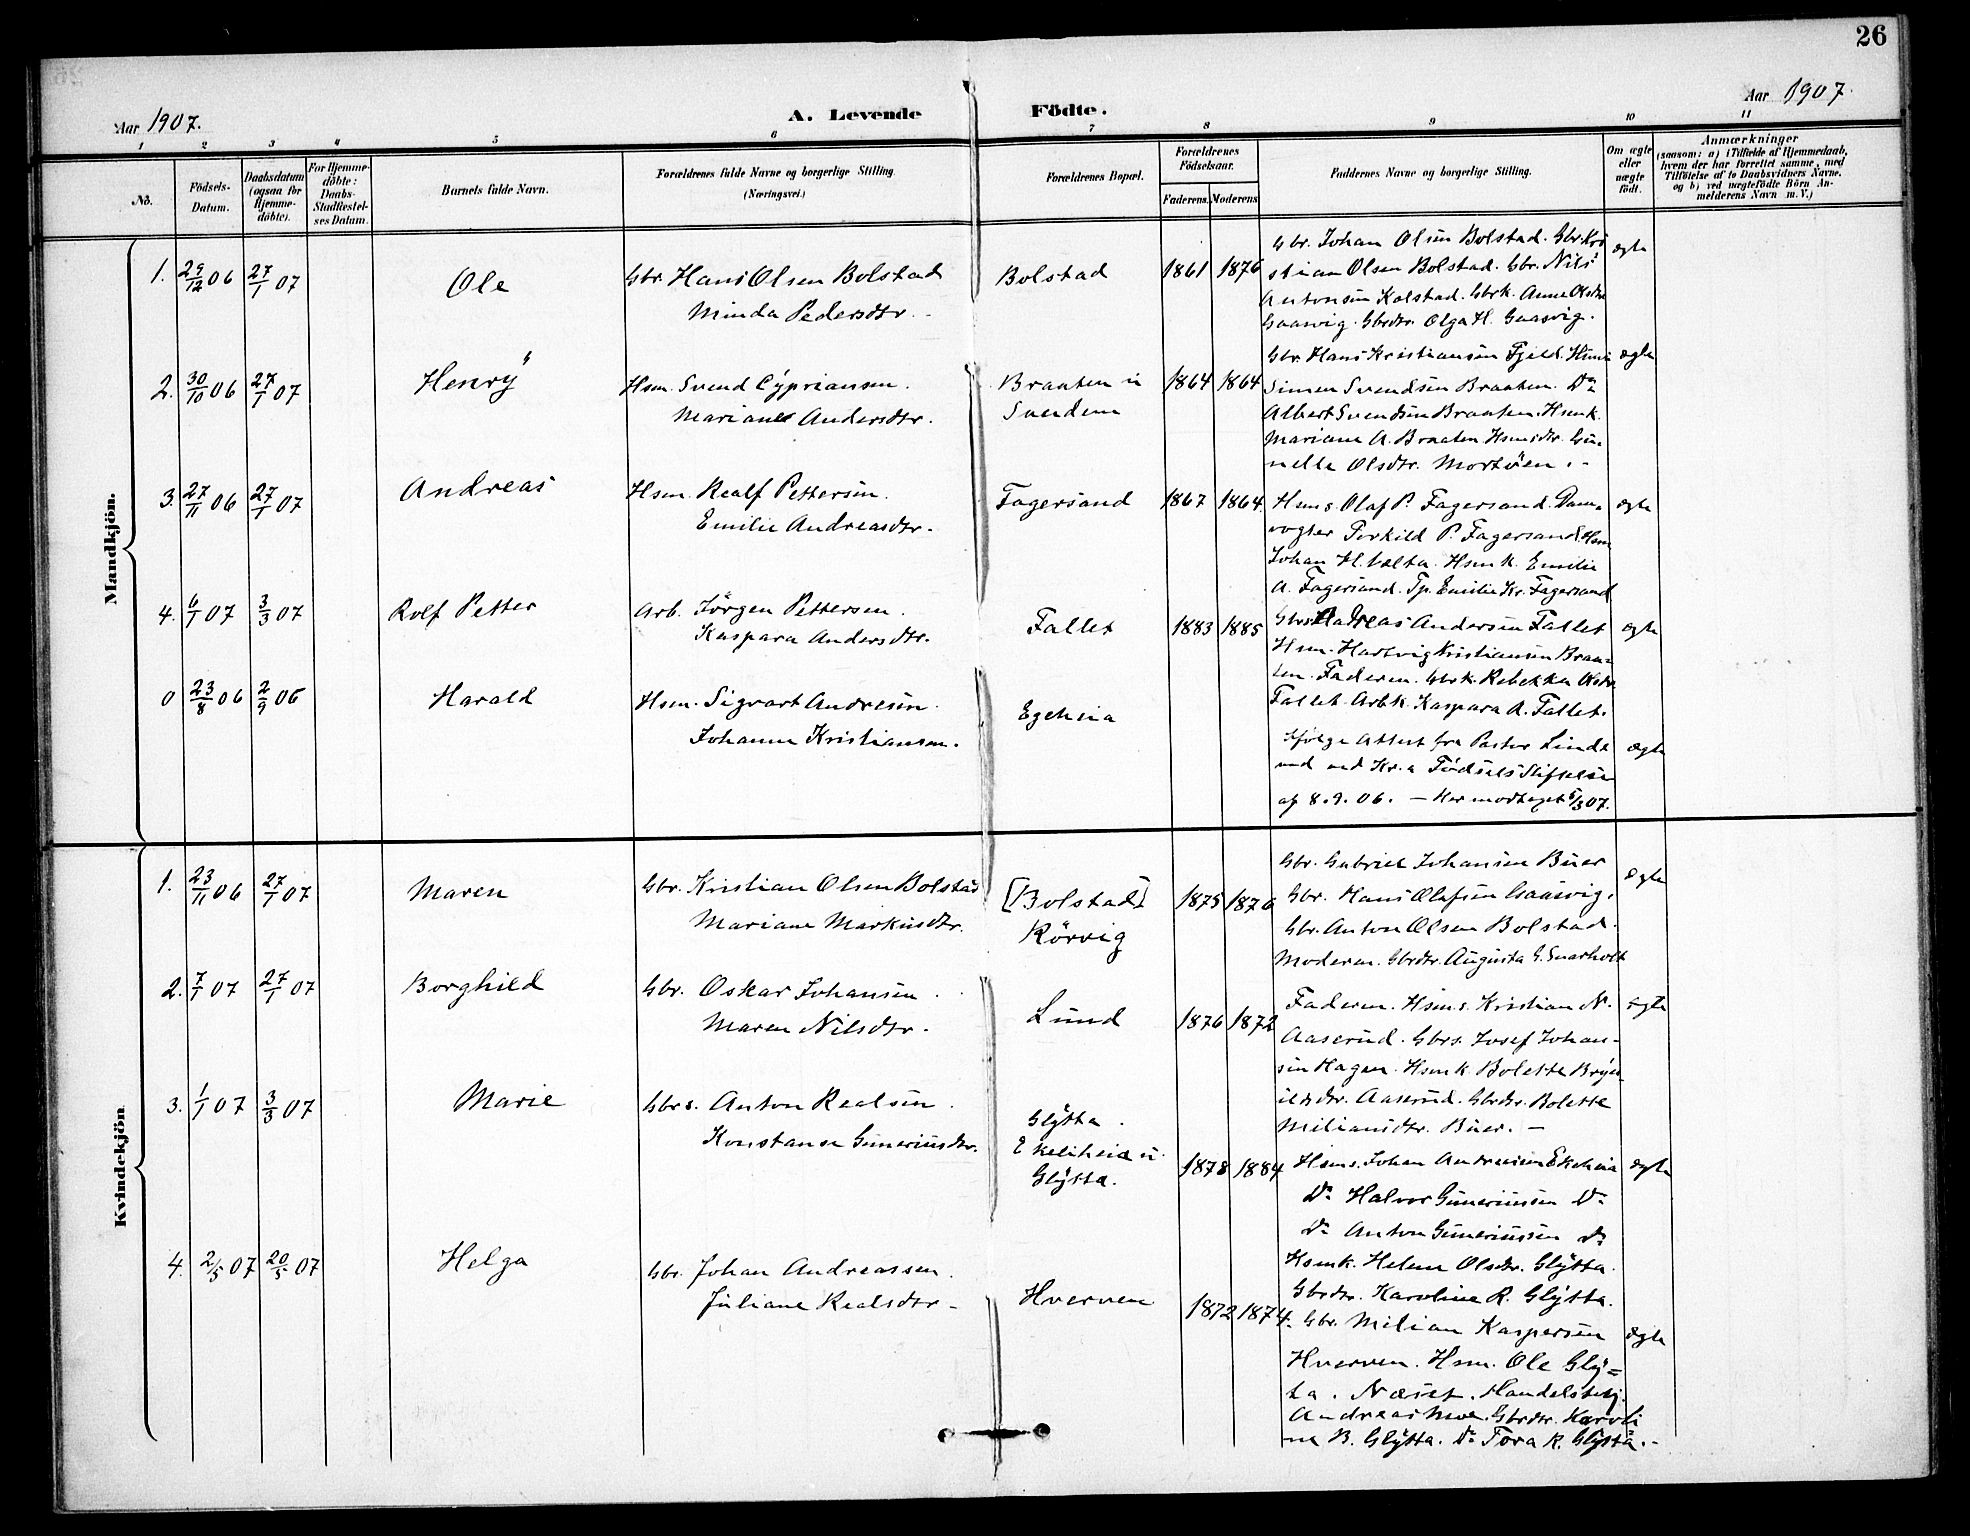 26
Aar 1907.
A. Levende Födte.
Aar 1907.
1 2 3 4 5 6 7 8 9 10 11
No.
Födsels-
Datum.
Daabsdatum
(ogsaa for
Hjemme-
döbte).
For Hjemme-
döbte:
Daabs-
Stadfæstel-
ses Datum.
Barnets fulde Navn.
Forældrenes fulde Navne og borgerlige Stilling.
(Næringsvei.)
Forældrenes Bopæl.
Forældrenes
Födselsaar.
Faderens. Moderens
Faddernes Navne og borgerlige Stilling.
Om ægte
eller
uægte
født.
Anmærkninger
(saasom: a) i Tilfælde af Hjemmedaab,
hvem der har forrettet samme, med
Tilföielse af to Daabsvidners Navne,
og b) ved uægtefödte Börn An-
melderens Navn m. V.)
Mandkjön.
1. 29/12 06 27/1 07 Ole
Gbr. Hans Olsen Bolstad
Minda Pedersdtr.
Bolstad 1861 1876
Gbr. Johan Olsen Bolstad. Gbr. Kri
stian Olsen Bolstad. Gbr. Nils
Antonsen Kolstad. Gbrk. Anne Olsdtr
Gaasvig. Gbrdtr. Olga H. Gaasvig.
ægte
2. 30/10 06 27/1 07 Henry
Hsm. Svend Cyprianson.
Mariane Andersdtr.
Braaten u
Svendem
1864 1864
Gbr. Hans Kristiansen Fjeld. Hsm
Simen Svendsen Braaten. Do
Albert Svendsen Braaten. Hsmk.
Mariane A. Braaten. Hsmsdtr. Gu-
nelle Olsdtr. Mortöen.-
ægte
3. 27/11 06 27/1 07 Andreas
Hsm. Realf Pettersen.
Emilie Andreasdtr.
Fagersand 1867 1864.
Hsms. Olaf P. Fagersand. Dam-
vogter Torkild P. Fagersand. Hsm
Johan H. Valta. Hsmk. Emilie
A. Fagersand. Tp. Emilie Kr. Fagersand
ægte
4. 6/1 07 3/3 07 Rolf Petter
Arb. Jörgen Pettersen.
Kaspara Andersdtr.
Fallet 1883 1885
Gbrs. Andreas Andersen Fallet
Hsm. Hartvig Kristiansen Braa-
ten. Faderen. Gbrk. Rebekka Olsdtr
Fallet. Arbk. Kaspara A. Fallet.
ægte
0 23/8 06 2/9 06 Harald
Hsm. Sigvart Andresen.
Johanne Kristiansen.
Egeheia
Ifölge Attest fra Pastor Linde
ved Kr.a Födsels Stiftelse
af 8.9.06. — Her modtaget 5/3 07.
ægte
Kvindekjön
1. 23/11 06 27/1 07 Maren
Gbr. Kristian Olsen Bolstad
Mariane Markusdtr.
[Bolstad]
Rörvig
1875 1876
Gbr. Gabriel Johansen Buer
Gbr. Hans Olafsen Gaasvig.
Gbr. Anton Olsen Bolstad.
Moderen. Gbrdtr. Augusta G. Snarholt
ægte
2. 7/1 07 27/1 07 Borghild
Gbr. Oskar Johansen.
Maren Nilsdtr.
Lund 1876 1872
Faderen. Hsms. Kristian N.
Aaserud. Gbrs. Josef Johan-
sen Hagen. Hsmk. Bolette Bryn-
ildsdtr. Aaserud. Gbrdtr. Bolette
Miliansdtr. Buer. -
ægte
3. 1/1 07 3/3 07 Marie
Gbrs. Anton Realsen.
Konstanse Guneriusdtr.
Glytta.
Ekeliheia u.
Glytta.
1878 1884
Hsms. Johan Andreasen Ekeheia
Do Halvor Guneriussen Do
Do Anton Guneriussen Do
Hsmk. Helene Olsdtr. Glytta.
Gbrdtr. Karoline R. Glytta.
ægte
4. 2/5 07 20/5 07 Helga
Gbr. Johan Andreassen.
Juliane Realsdtr -
Hverven 1872 1874.
Gbr. Milian Kaspersen
Hverven. Hsm. Ole Gly=
ta. Næset. Handelsbetj.
Andreas Moe. Gbrdtr. Karoli
ne B. Glytta. Do Tora R. Glytta.-
ægte